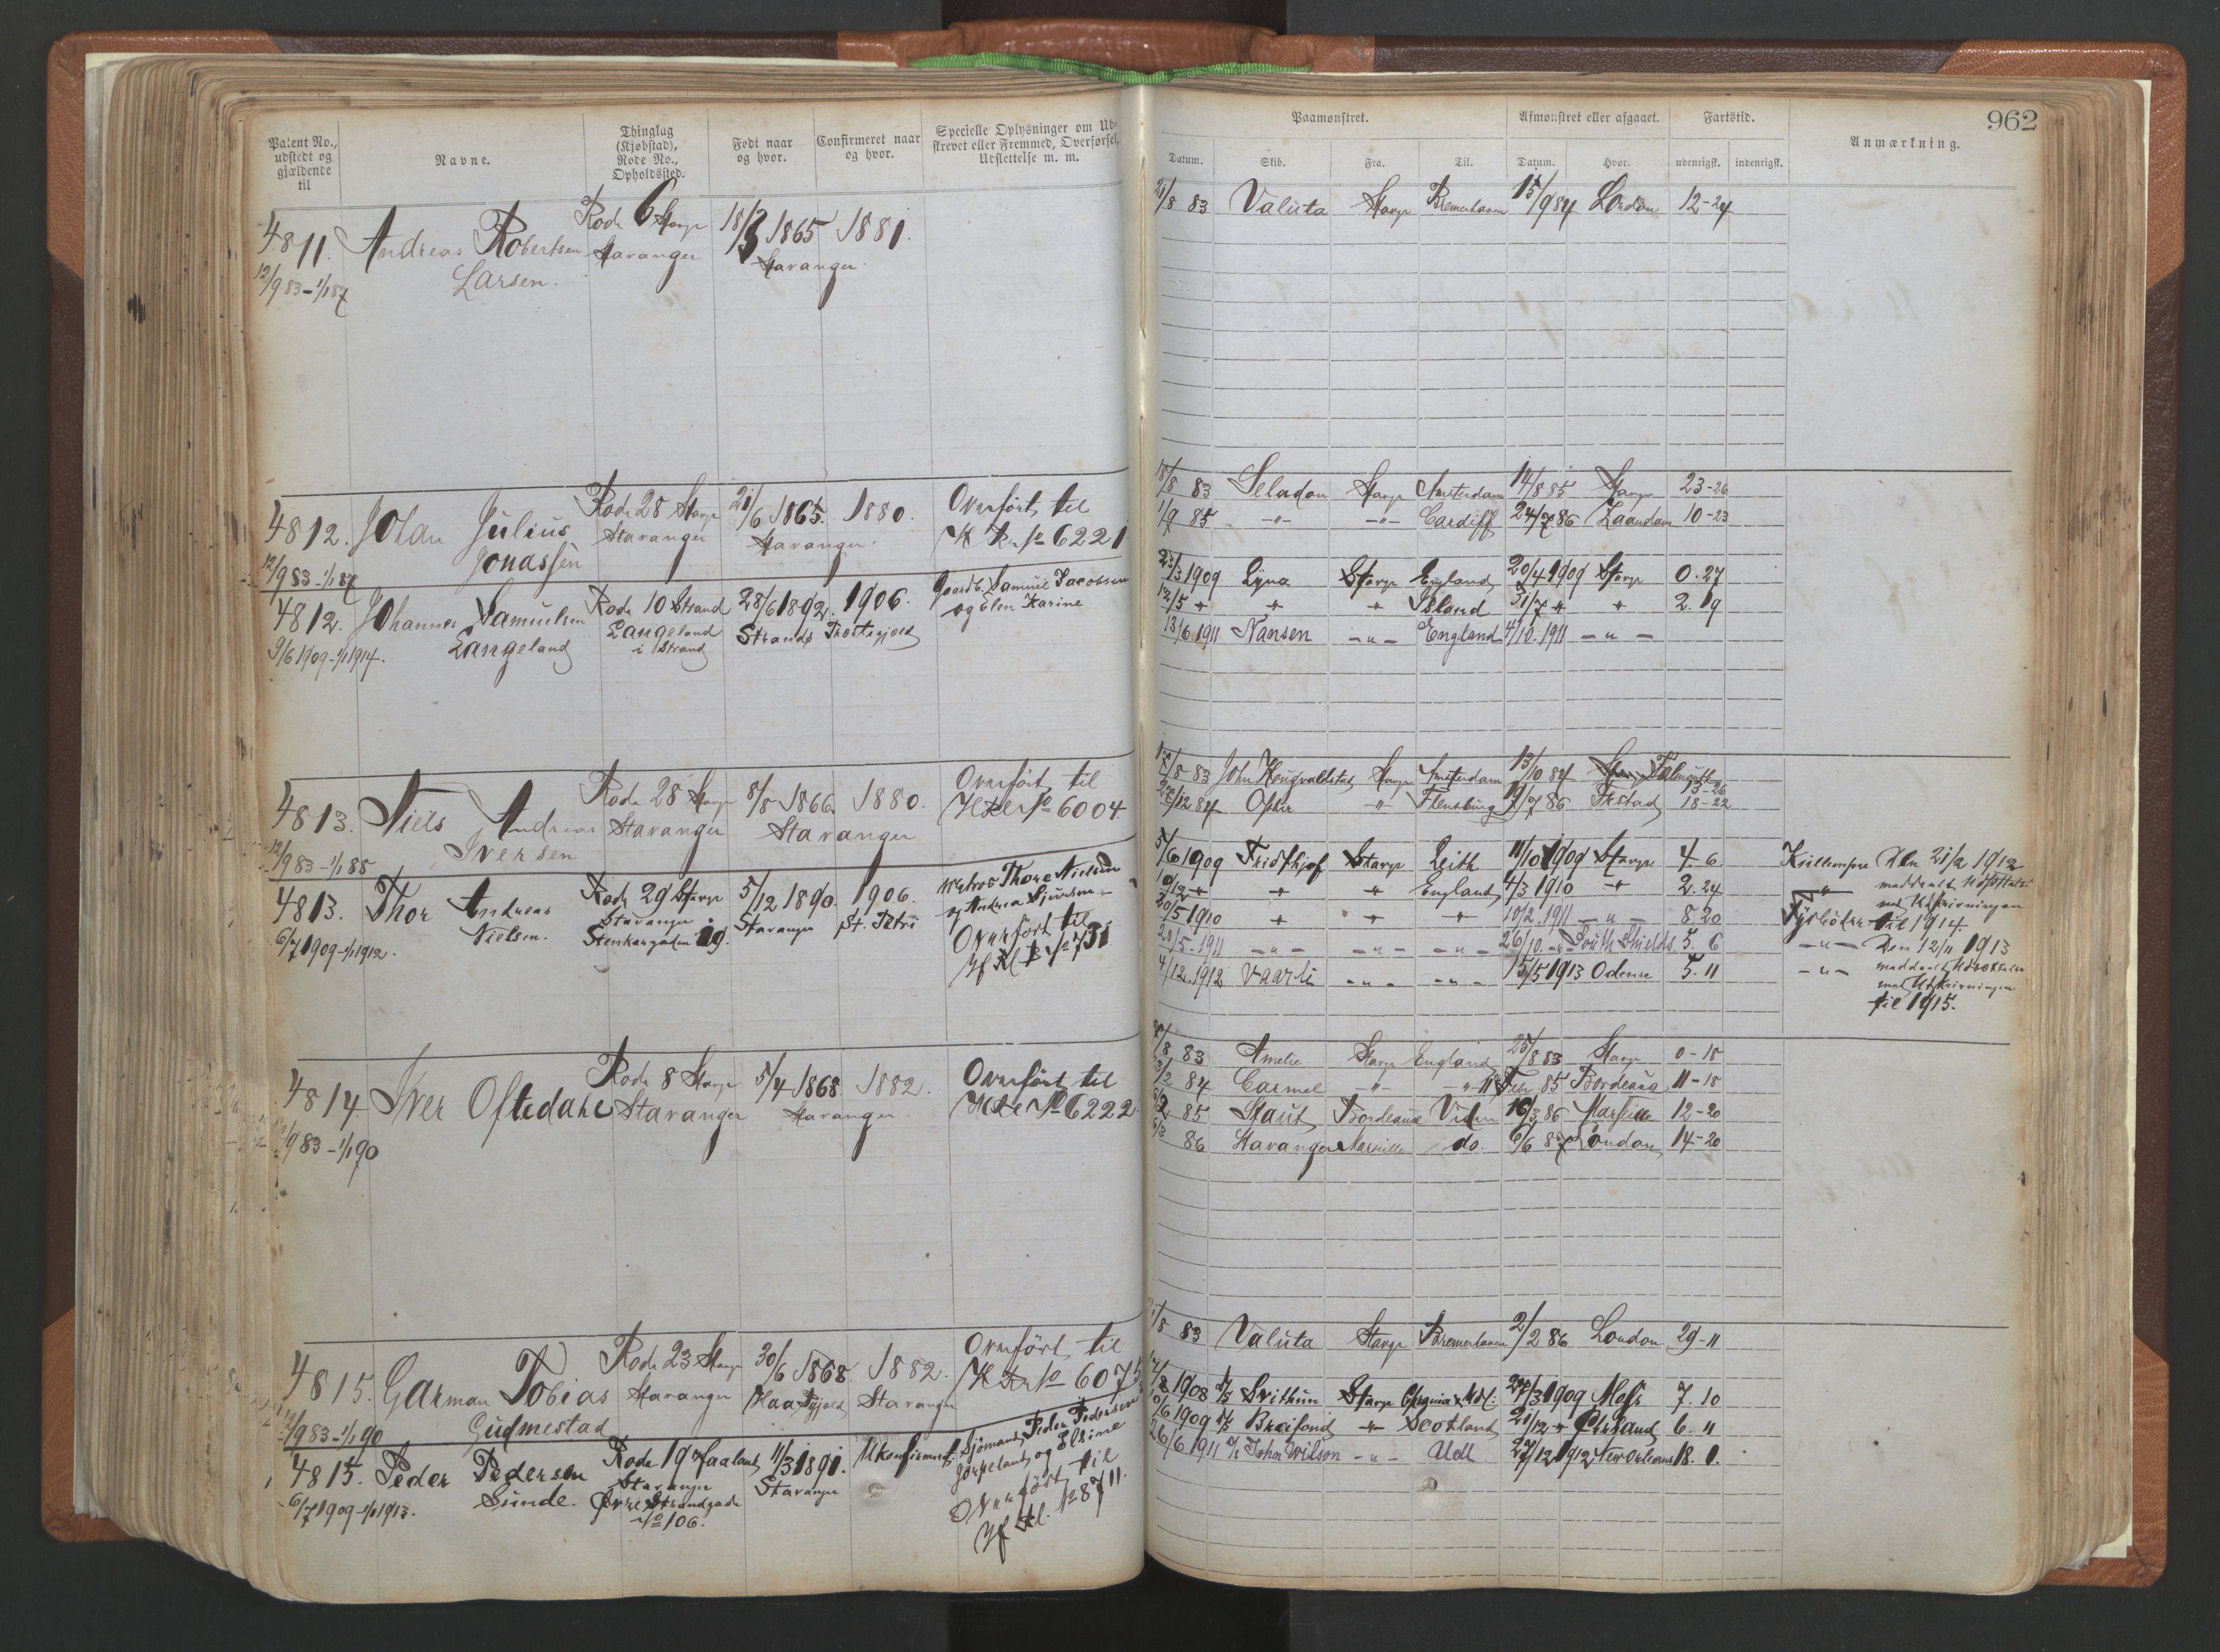 962
Patent No., udstedt og gjældende til
Navne.
Thinglag (Kjøbstad), Rode No., Opholdssted.
Født naar og hvor.
Confirmeret naar og hvor.
Specielle Oplysninger om Ud-
skrevet eller Fremmed, Overførsel,
Udslettelse m. m.
Paamønstret.
Afmønstret eller afgaaet.
Fartstid.
Anmærkning.
Datum. Skib. Fra. Til. Datum. Hvor. udenrigsk. indenrigsk.
4811. Andreas Robertsen Rode 6 Stavgr 18/3 1865 1881.
Larsen. Stavanger Stavanger
12/9 83 - 1/1 87
21/8 83 Valuta Stavgr Bremerhaven 15/9 84 London 12-24
4812. Johan Julius Rode 28 Stavgr 21/6 1865. 1880. Overført til
Jonassen Stavanger Stavanger No 6221
12/9 83 - 1/1 87
18/8 83 Seladon Stavgr Amsterdam 14/8 85 Stavgr 23-26
1/9 85 -"- -"- Cardiff 24/7 86 Zaandam 10-23
4812. Johannes Samuelsen Rode 10 Strand 28/6 1892. 1906. Gaardb. Samuel Jacobsen
Langeland Langeland Strands Præstegjæld og Elen Karine
9/6 1909 - 1/1 1914. i Strand
23/3 1909 Lyna Stavgr England 20/4 1909 Stavgr 0.27
12/5 " " " Island 31/7 " " 2.19
13/6 1911 Nansen -"- England 4/10.1911 -"-
4813. Niels Andreas Rode 28 Stavgr 8/8 1866. 1880. Overført til
Iversen Stavanger Stavanger No 6004
12/9 83 - 1/1 85
17/8 83 John Haugvaldstad Stavgr Amsterdam 13/10 84 Falmouth 13-26
22/12 84 Oscar " Flensburg 19/7 86 18-22
4813. Thor Andreas Rode 29 Stavgr 5/12 1890. 1906. Matros Thore Nielsen
Nielsen. Stavanger Stavanger St. Petri og Andrea
6/7 1909 - 1/1 1912. Stenkargaden 19. Overført til
No 731
5/6 1909 Fridthjof Stavgr Leith 11/10 1909 Stavgr 4.6
10/12 " " " England 4/3 1910 " 2.24
20/5 1910 " " " 10/2.1911 -"- 8 20
20/5.1911 -"- -"- -"- 26/10 -"- South Shields 5. 6
4/12.1912 Vaarli -"- -"- 15/5 1913 Odense 5.11
Den 21/2 1912
meddelt Udsættelse
med Udskrivningen
til 1914.
-"- Den 12/11 1913
-"- meddelt Udsættelse
med Udskrivningen
til 1915.
4814 Iver Oftedahl Rode 8 Stavgr 5/4 1868. 1882. Overført til
Stavanger Stavanger No 6222
12/9 83 - 1/1 90
83 Amelie Stavgr England 25/8 83 Stavgr 0-18
84 Carmel -"- -"- Febr. 85 Bordeaux 11-18
85 Staut Bordeaux Viden 16/3 86 Marseille 12-20
86 Stavanger Marseille do. 6/6 87 London 14-20
4815. Garman Tobias Rode 23 Stavgr 30/6 1868. 1882. Overført til
Gudmestad Stavanger Haa Pgjæld Stavanger No 6075
12/9 83 - 1/1 90
21/8 83 Valuta Stavgr Bremerhaven 2/2 86 London 29-11
4815. Peder Pedersen Rode 19 Haaland 11/3 1891. Ukonfirmert. Sjömand Peder Pedersen
Sunde. Stavanger Stavanger Jørpeland og Elsine
6/7 1909 - 1/1 1913. Øvre Strandgade Overført til
No 106. No 8711.
1908 Svithun Stavgr 27/3 1909 Moss 7. 10
1909 Breifond " Scotland 21/12 " 6. 11
26/6 1911 John Wilson -"- Udl 27/12 1912 New Orleans 18. 1.